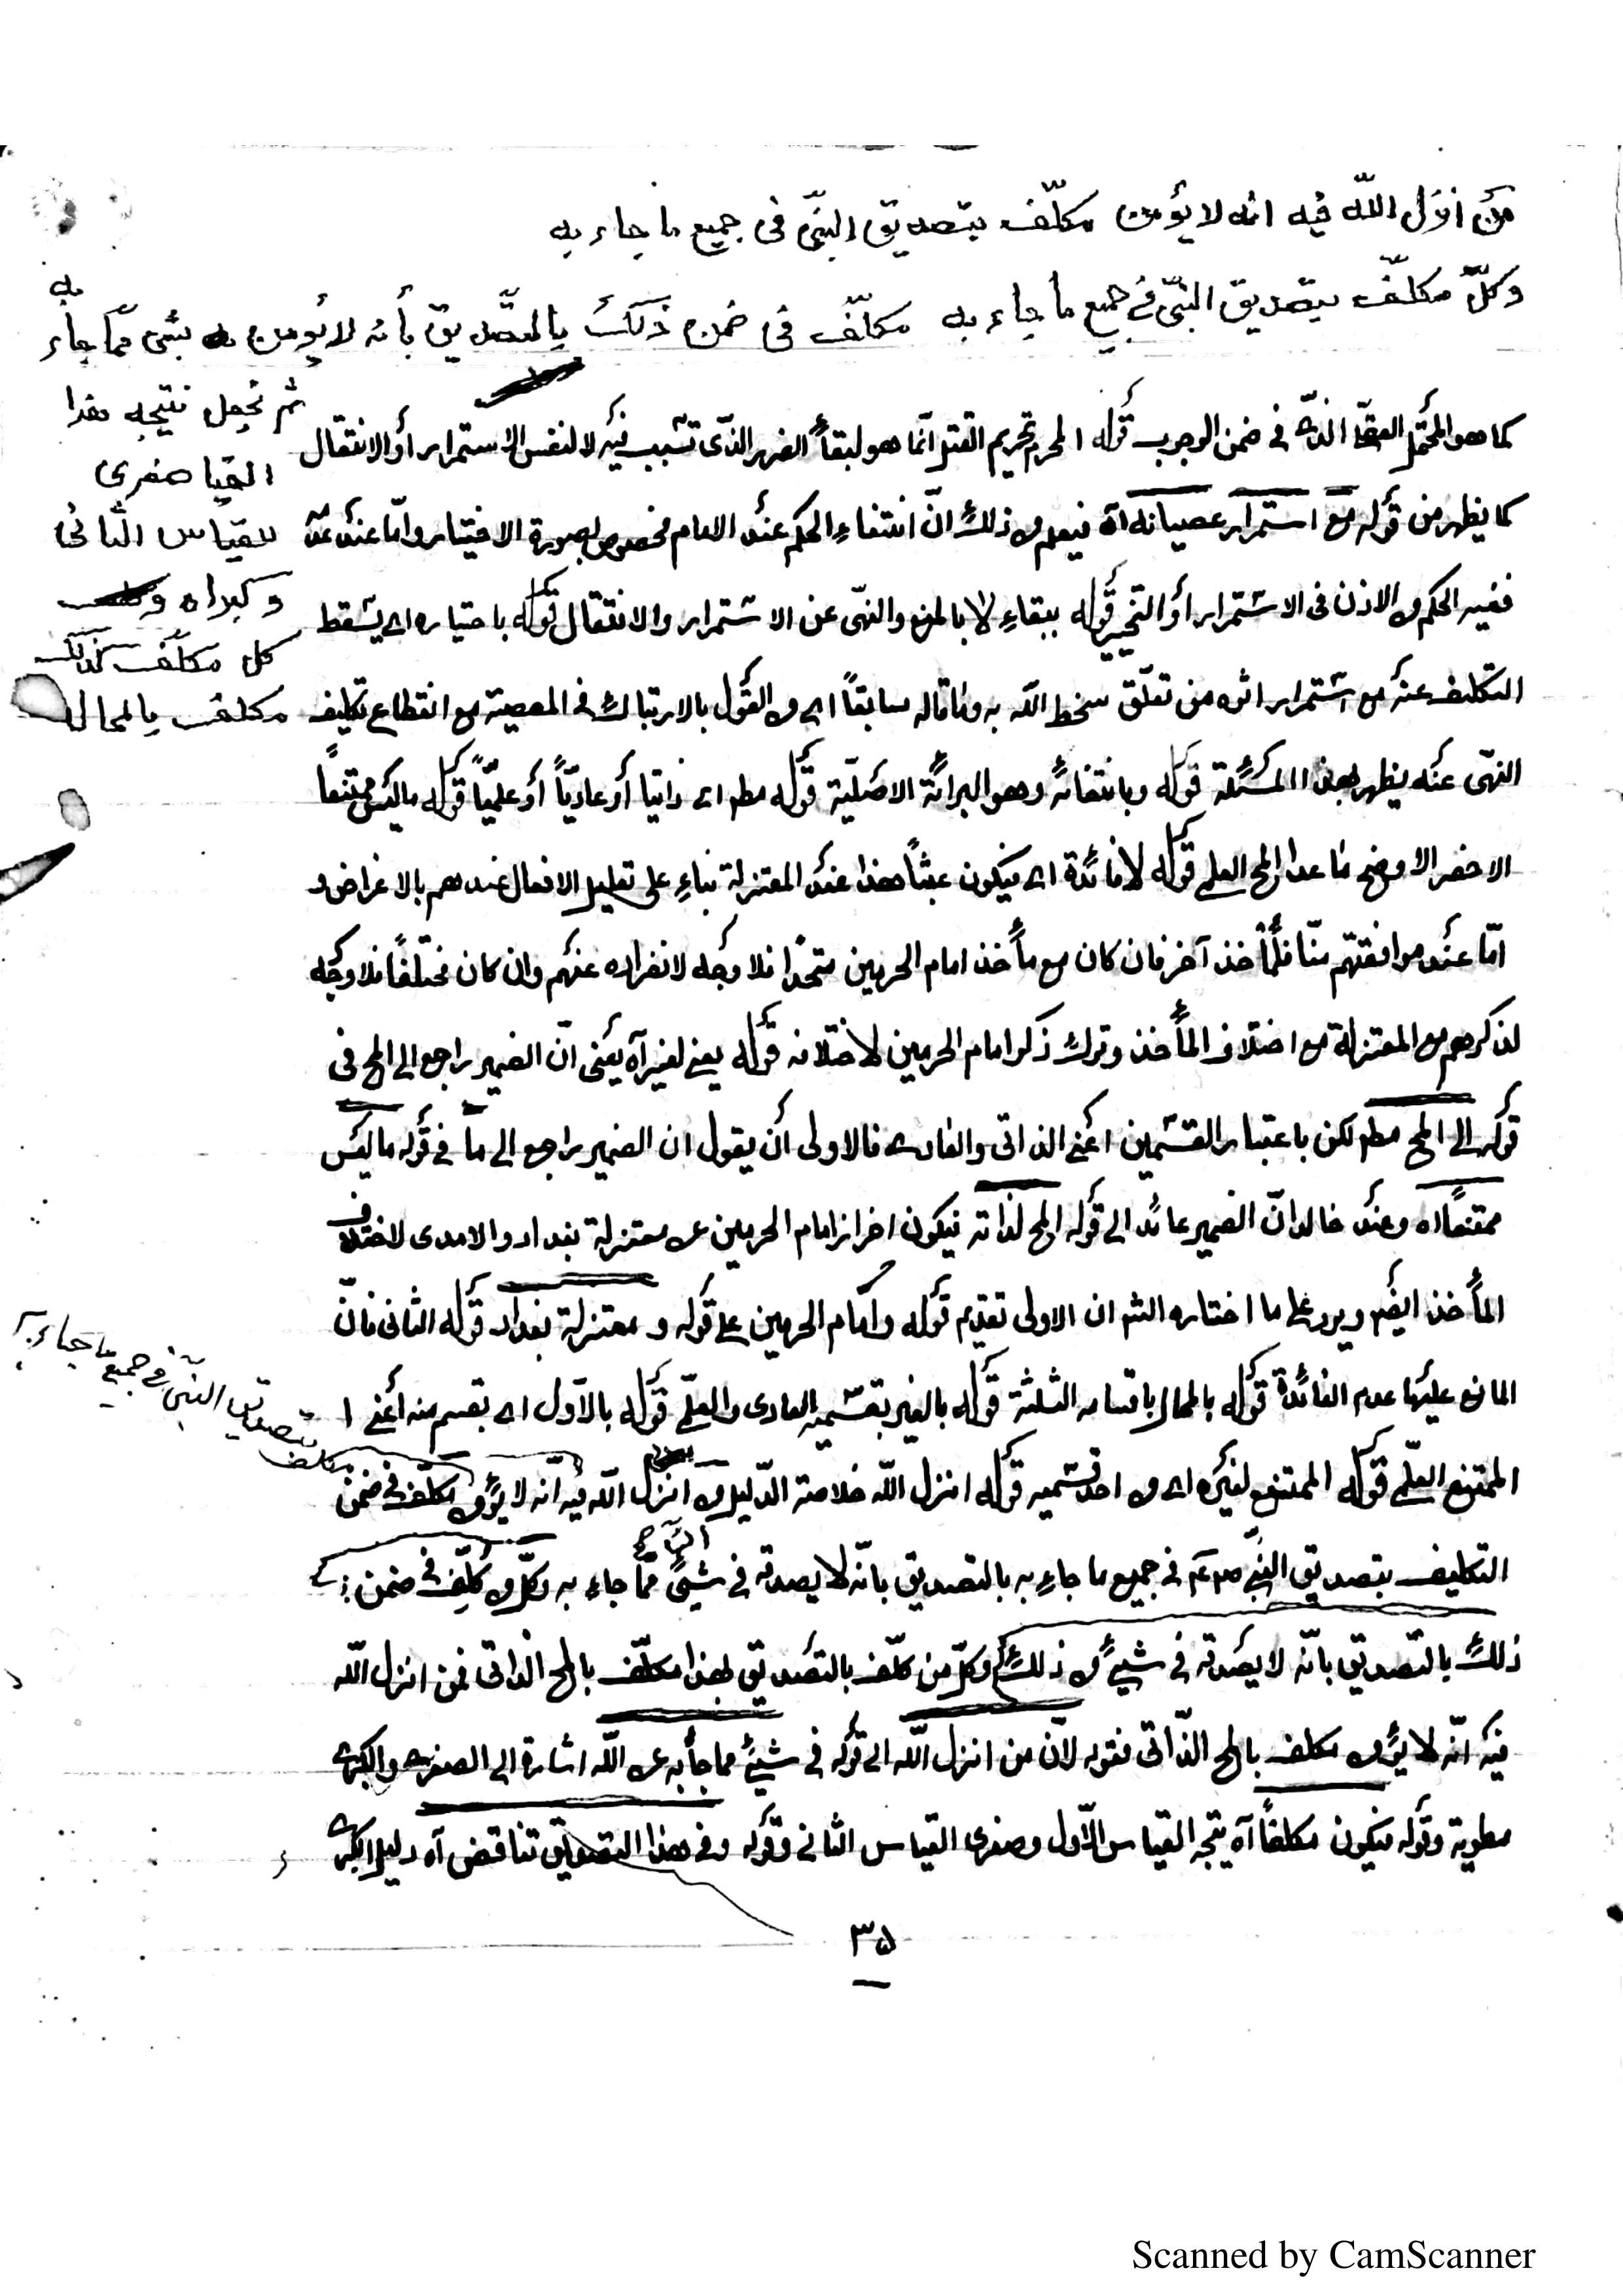 من انزل اللّه فيه انه لا يؤمن مكلّف بتصديق النبيّ فى جميع ما جاء به
وكلّ مكلّف بتصديق النبيّ في جميع ما جاء به مكلّف فى ضمن ذلك بالتصديق بأنه لا يؤمن بشئ ممّا جاء به
ثم نجعل نتيجه هذا
القيا صغرى
للقياس الثانى
وكبراه
كل مكلّف كذلك
مكلف بالمحال
كما هو المحتمل فى ضمن الوجوب قوله المحرم تحريم القتل انّما هو لبقاء الضرر الذى تسبب فيه لا لنفس الاستمرار أو الانتقال
كما يظهر من قوله مع استمرار عصيانه آه فيعلم من ذلك انّ انتفاء الحكم عند الامام مخصوص بصورة الاختيار وامّا عند
ففيه الحكم من الاذن فى الاستمرار او التخيير قوله ببقاء لا بالمنع والنهى عن الاستمرار والانتقال قوله باختياره اى يسقط
التكليف عنه مع استمرار اثره من تعلّق سخط اللّه به وما قاله سابقاً اى من القول بالارتباك فى المعصية مع انقطاع تكليف
النهى عنه يظهر بهذا المسئلة قوله وبانتفائه وهو البرائة الاصليّة قوله مطـ اى ذاتيا أو عاديّاً أو علميّاً قوله ما ليس ممتنعاً
الاخصر الاوضح ما عدا المح العلمى قوله لا فائدة اى فيكون عبثاً هذا عند المعتزلة بناء على تعليل الافعال عندهم بالاغراض و
امّا عند موافقتهم منّا فلمأخذ آخر فان كان مع مأخذ امام الحرمين متحدًا فلا وجه لانفراده عنهم وان كان مختلفًا فلا وجه
لذكرهم مع المعتزلة مع اختلاف المأخذ وترك ذكر امام الحرمين لاختلافه قوله يعنى لغير آه يعنى انّ الضمير راجع الى المح فى
قوله الى المح مطـ لكن باعتبار القسمين اعنى الذاتى والعادى فالاولى أن يقول ان الضمير راجع الى ما فى قوله ما ليس
ممتنعاً اه وعند خالد انّ الضمير عائد الى قوله المح لذاته فيكون افراز امام الحرمين عن معتزلة بغداد والامدى لاختلاف
المأخذ ايضًا ويرد على ما اختاره الشـ ان الاولى تقديم قوله وامام الحرمين على قوله و معتزلة بغداد قوله الثانى فانّ
المانع عليهما عدم الفائدة قوله بالمحال باقسامه الثلثة قوله بالغير بقسميه العادى والعلمى قوله بالاوّل اى بقسم منه أعنى ا
الممتنع العلمى قوله الممتنع لغيره اى من احد قسميه قوله انزل اللّه خلاصة الدّليل من انزل اللّه فيه انّه لا يؤمن مكلّف فى ضمن
مكلف بتصديق النبي في جميع ما جاء به
التكليف بتصديق النبى صلعم فى جميع ما جاء به بالتصديق بانّه لا يصدقه فى شيئ ممّا جاء به وكلّ من كلّف فى ضمن
ذلك بالتصديق بانّه لا يصدقه فى شيئ من ذلك وكلّ من كلّف بالتصديق بهذا مكلّف بالمح الذاتى فمن انزل اللّه
فيه انّه لا يؤمن مكلف بالمح الذّاتى فقوله لانّ من انزل اللّه الى قوله فى شيئ مما جأ به عن اللّه اشارة الى الصغرى والكبرى
مطوية وقوله فيكون مكلفاً آه نتيجة القياس الاوّل وصغرى القياس الثانى وقوله وفى هذا التصديق تناقض آه دليل الكبرى
٣٥
Scanned by CamScanner